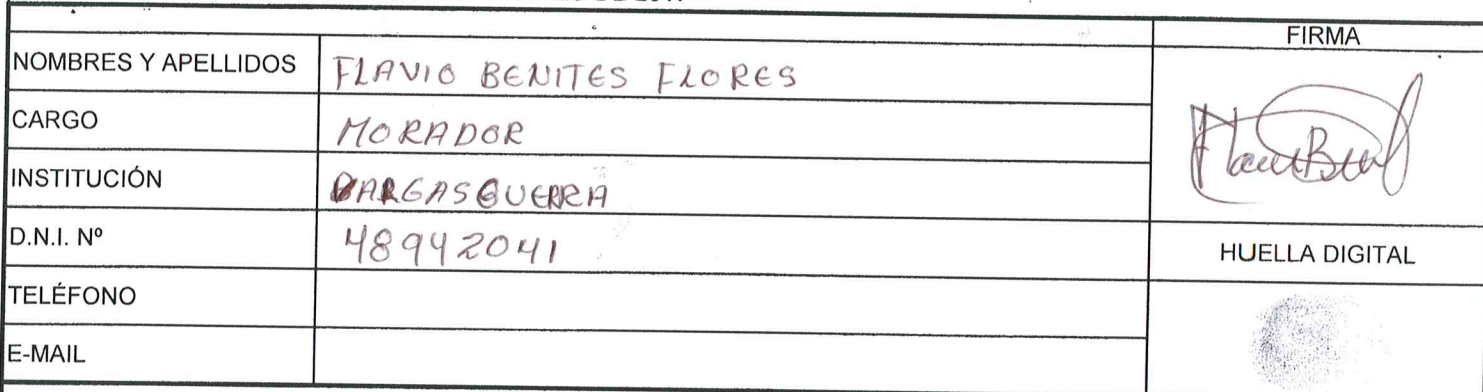 FIRMA
NOMBRES Y APELLIDOS FLAVIO BENITES FLORES
CARGO MORADOR
INSTITUCIÓN VARGAS GUERRA
D.N.I. Nº 48942041
HUELLA DIGITAL
TELÉFONO
E-MAIL